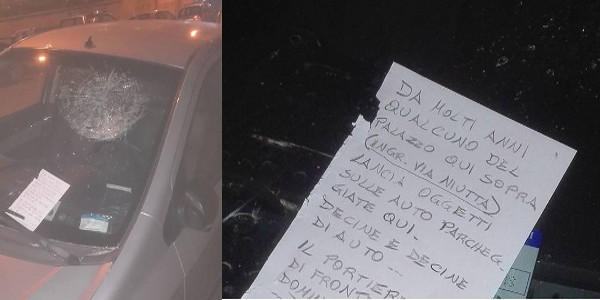 DA MOLTI ANNI
QUALCUNO DEL
PALAZZO QUI SOPRA
(INGR. VIA NIUTTA)
LANCIA OGGETTI
SULLE AUTO PARCHEG.
GIATE QUI.
DECINE E DECINE
DI AUTO ...
IL PORTIERE
DI FRONT